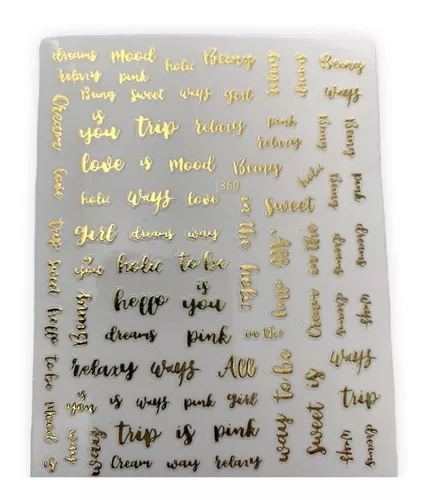 dreams Mood holic Being relaxy dreams Being
relaxy pink
Being sweet ways girl ways
Cream is you trip relaxy pink Being Being
relaxy
love love is Mood Being holic Being pink
360
holic ways love in the sweet
trip girl dreams way All day in the dreams dreams
sweet is you holic to be holic
hello Being hello is you Cream dreams ways
dreams pink in the
to be relaxy ways All way to be sweet is ways
Mood is you is ways pink girl trip
is way trip is pink ways dreams
Cream way relaxy